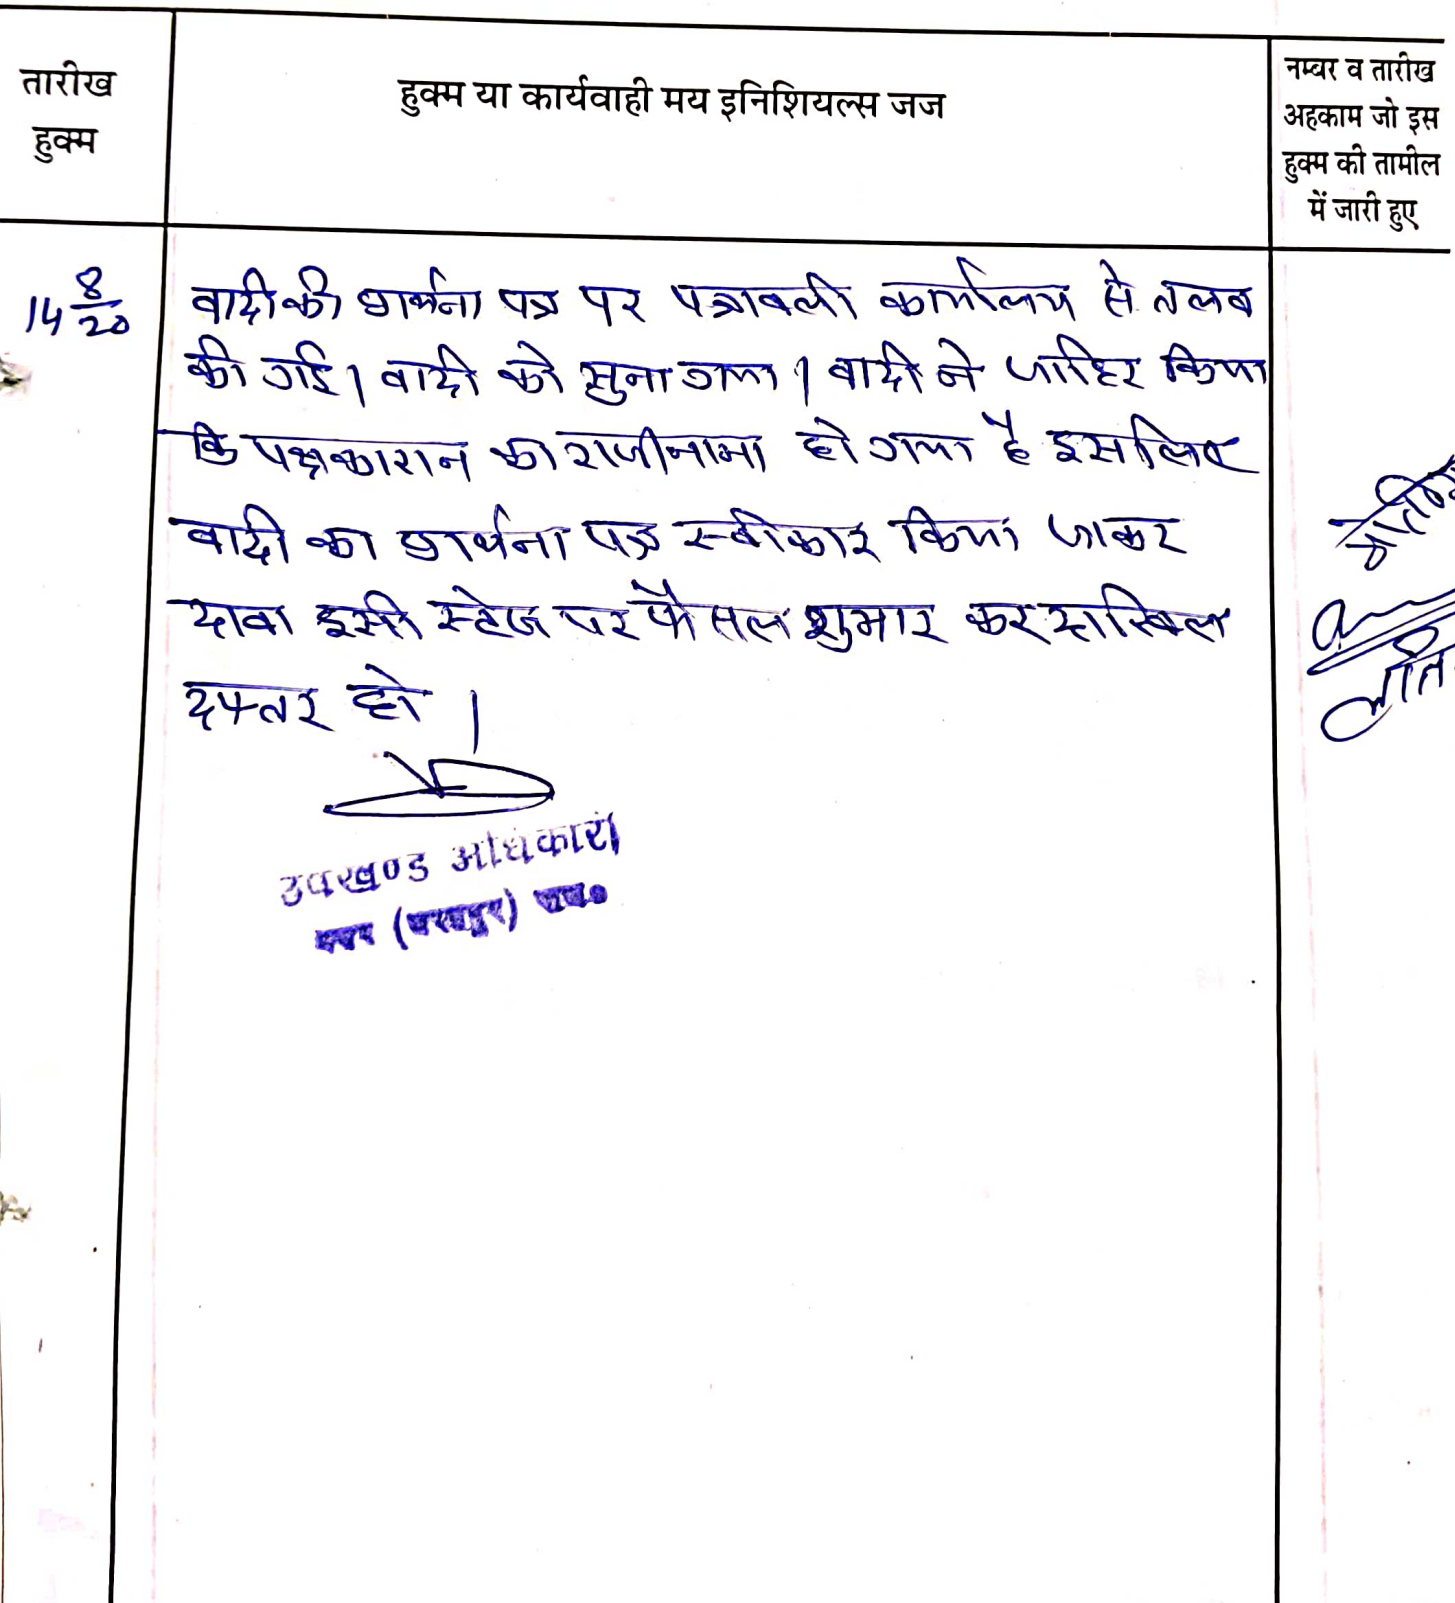 तारीख
हुक्म
हुक्म या कार्यवाही मय इनिशियल्स जज
नम्बर व तारीख
अहकाम जो इस
हुक्म की तामील
में जारी हुए
14 8/20
वादी की प्रार्थना पत्र पर पत्रावली कार्यालय से तलब
की गई। वादी को सुना गया। वादी ने जाहिर किया
कि पक्षकारान का राजीनामा हो गया है इसलिए
वादी का प्रार्थना पत्र स्वीकार किया जाकर
दावा इसी स्टेज पर फैसल शुमार कर दाखिल
दफ्तर हो।
उपखण्ड अधिकारी